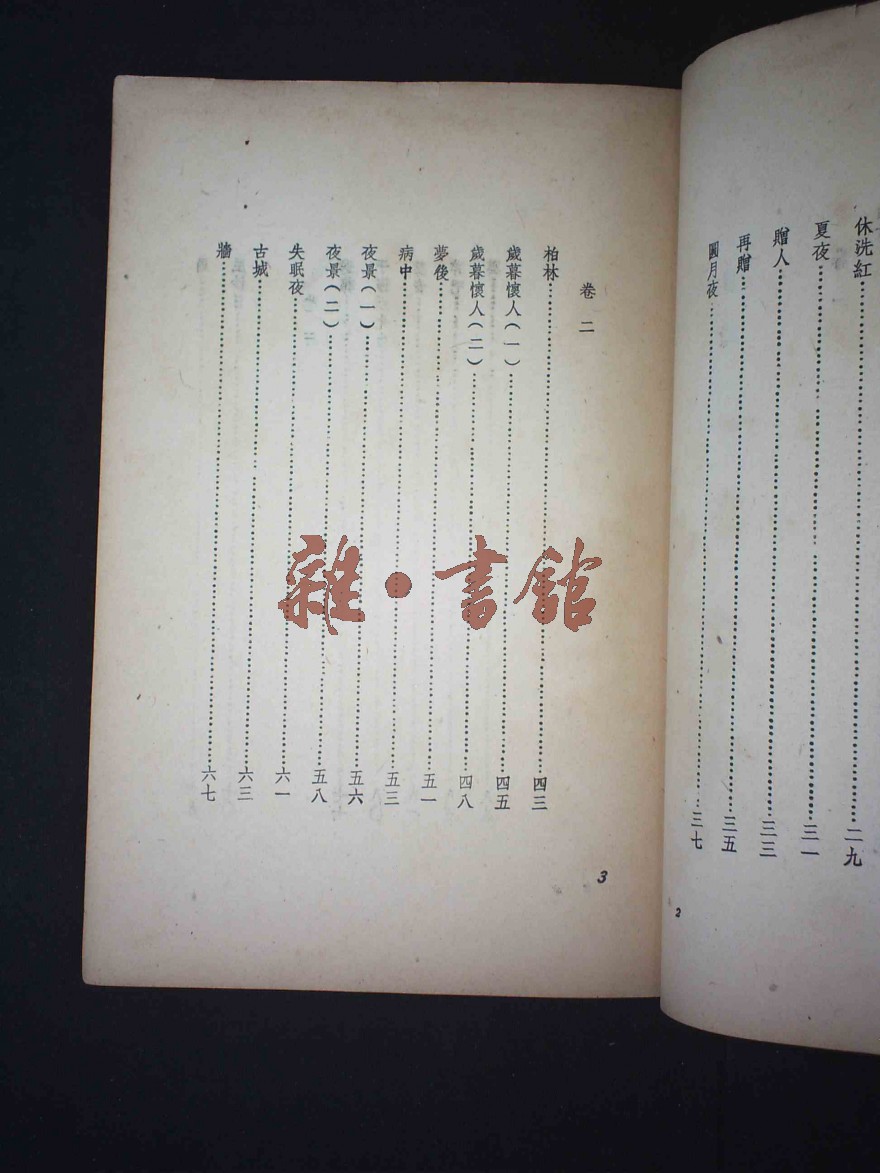 休洗紅……二九
夏夜……三一
贈人……三三
再贈……三五
圓月夜……三七
2
卷 二
柏林……四三
歲暮懷人(一)……四五
歲暮懷人(二)……四八
夢後……五一
病中……五三
夜景(一)……五六
夜景(二)……五八
失眠夜……六一
古城……六三
牆……六七
3
雜·書館